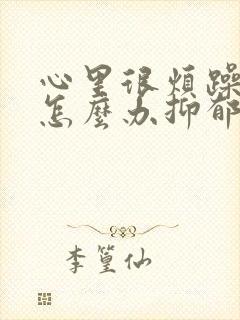 心里很烦躁
怎麼办抑郁
李篁仙